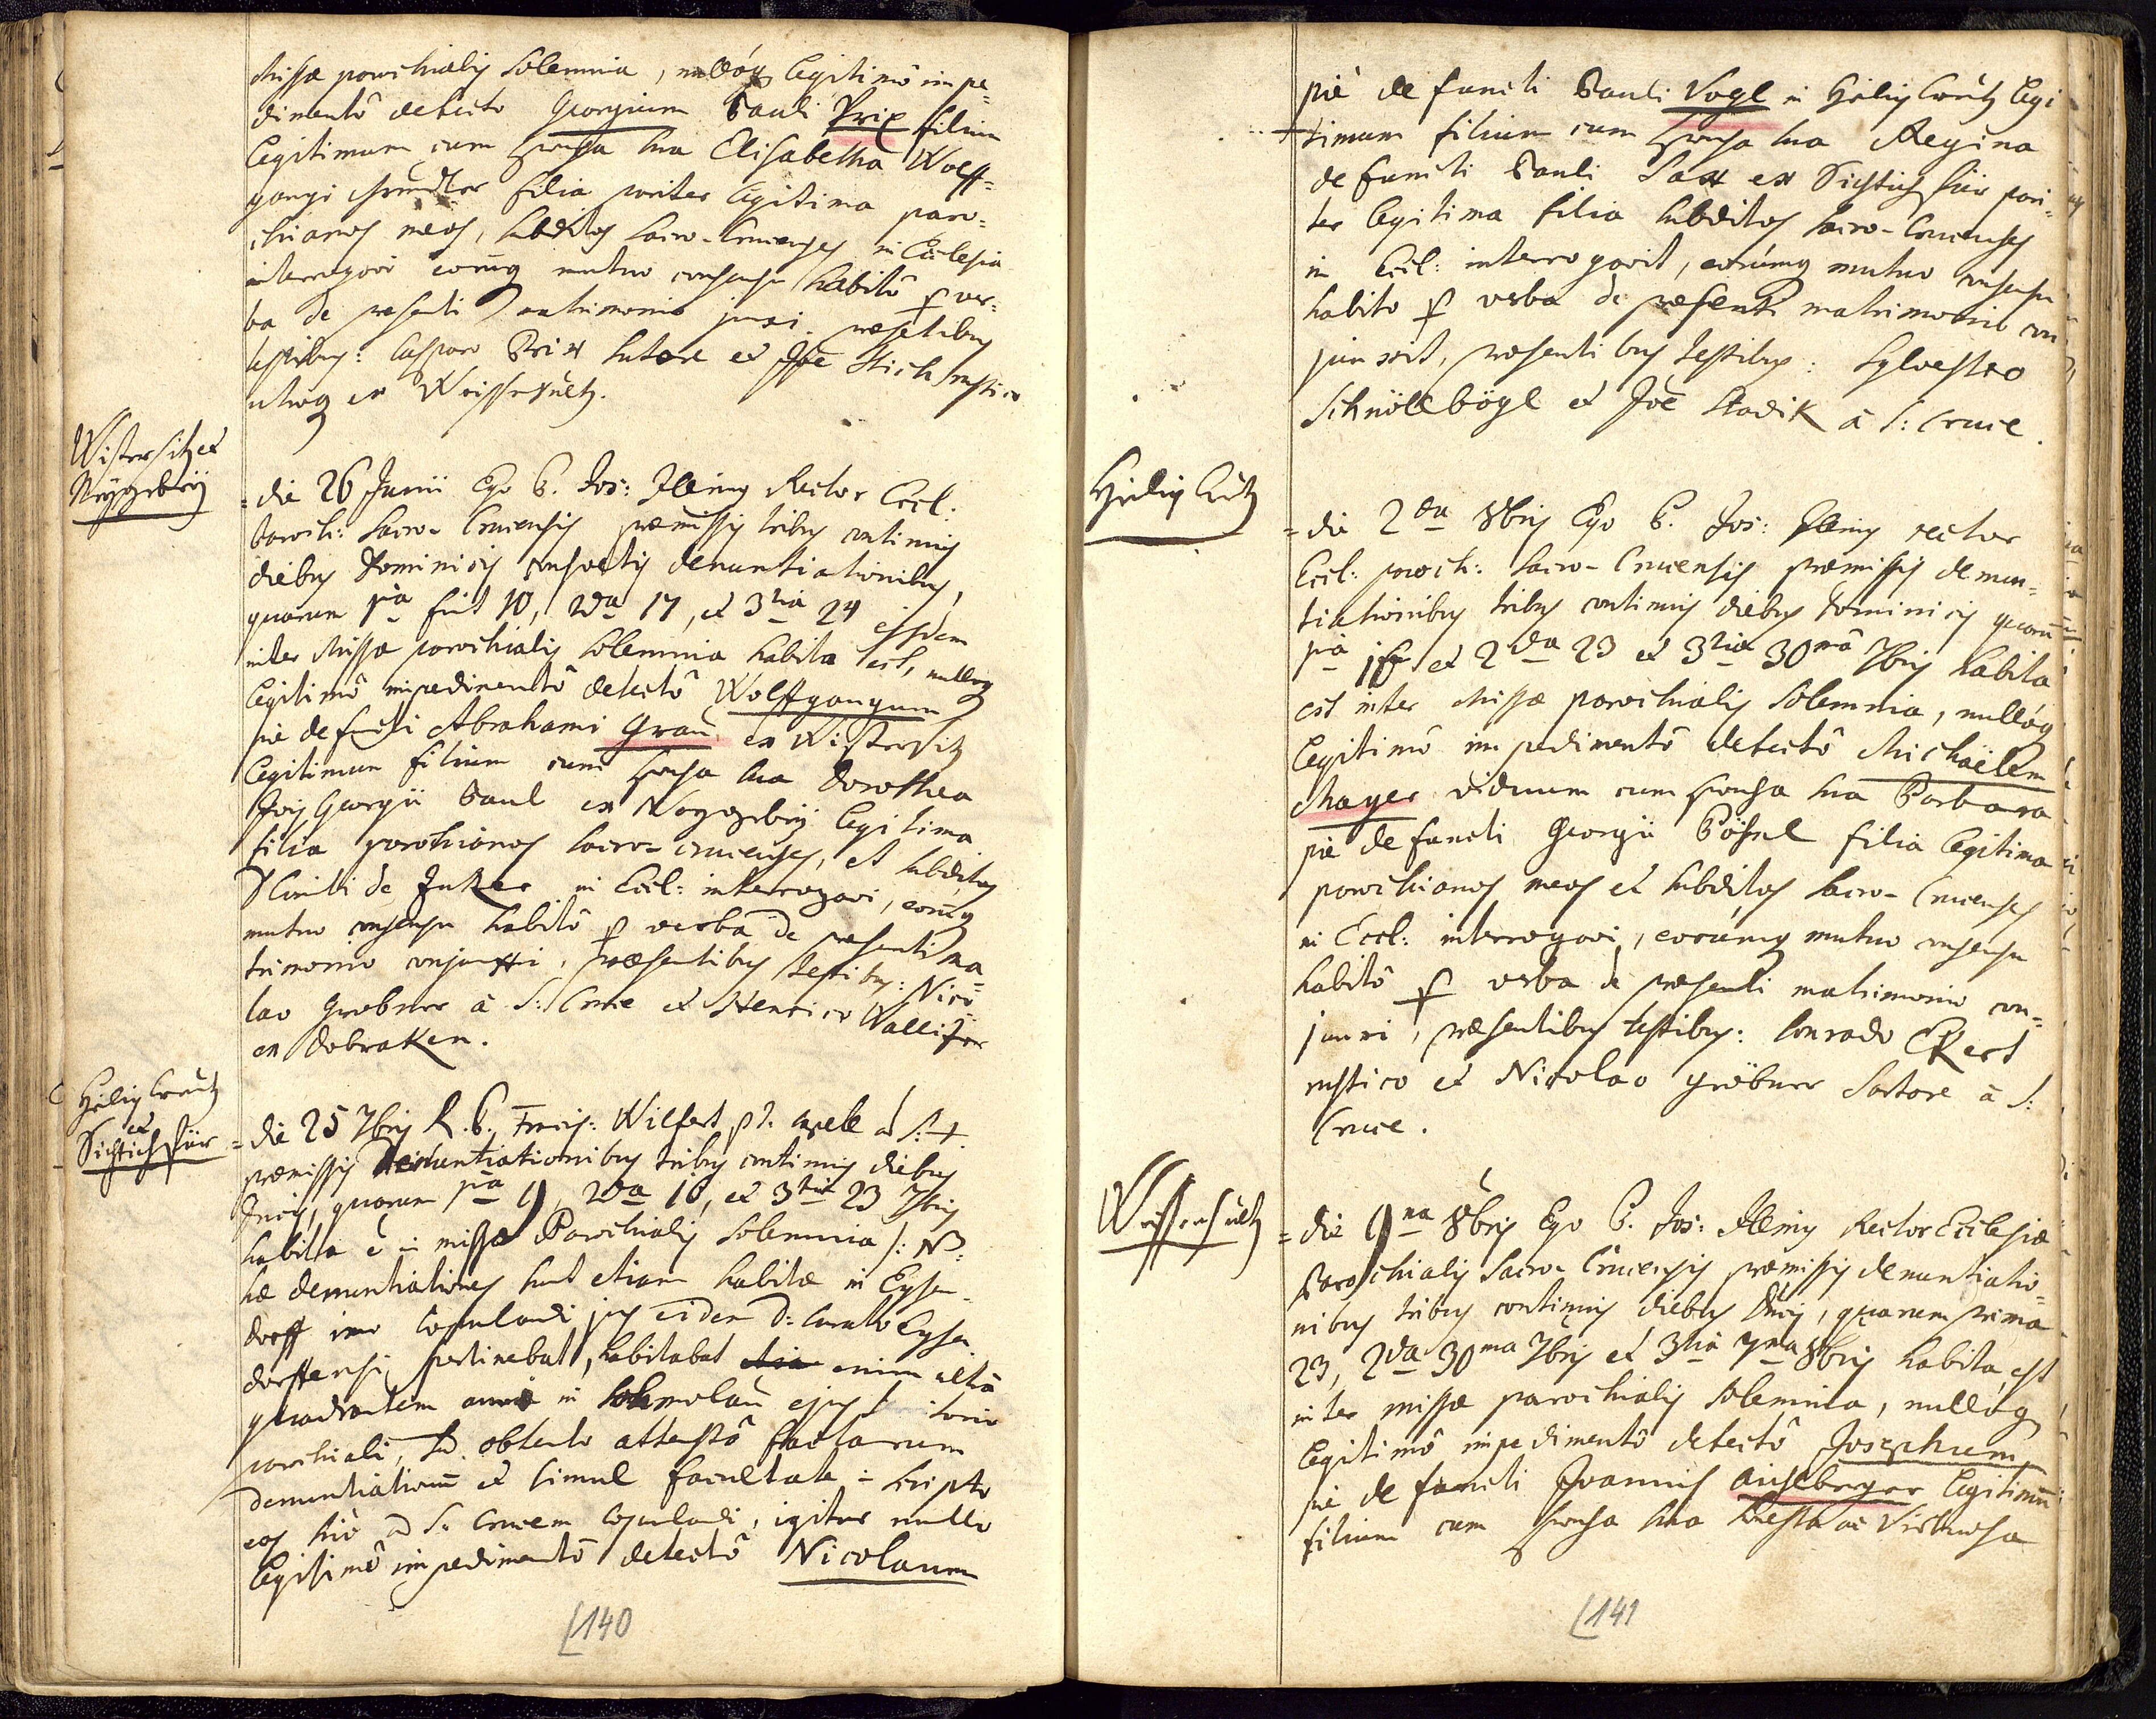 Missæ parochialis solemnia, nullóq legitimô impe=
dimentô detecto Georgium Pauli Prix filium
legitimum cum sponsa sua Elisabetha Wolff=
gangi filia pariter legitima paro=
chianos meos, subditos Sacro-Crucenses in Ecclesia
interrogavi eorumq mutuo consensu habitô p ver=
ba de præsenti matrimonio junxi. præsentibus
testibus: Casparo Prix sutore et Joē Stich rustico
utroq ex Weissensultz.
Wistersitz et
= die 26 Junii Ego P. Jos: Illing Rector Eccl:
Paroch: Sacro-Crucensis præmissis tribus continuis
diebus Dominicis consvetis denuntiationibus,
quarum 1a fuit 10, 2da 17, et 3tia 24 ejusdem
inter Missæ parochialis solemnia habita est, nulloq
legitimô impedimentô detectô Wolffgangum
pie defuncti Abrahami Grau ex Wistersitz
legitimum filium cum sponsa sua Dorothea
Jois Georgii Paul ex legitima
filia parochianos Sacro-crucenses, et subditos
Comiti de Juker in Eccl: interrogavi, eorūq
mutuo consensu habitô p verba de præsenti ma=
trimonio conjunxi, præsentibus testibus: Nico=
lao Grobner à S: Cruce et Henrico Wallißer
ex Dobraken.
Heilig Creutz
et
Sichtichfür
= die 25 7bris R. P. Francis: Wilfert p.t. capell. ad S: +
præmissis denuntiationibus tribus continuis diebus
Dnicis, quarum 1a 9, 2da 16, et 3tia 23 7bris
habita ē in missæ Parochialis solemnia /: NB:
hæ denuntiationes sunt etiam habitæ in Eysen=
dorff imo Copulandi jus eidem D: Curato Eysen
dorffensi pertinebat, habitabat enim ultra
quadrantem anni in Schmolau ejus torio
parochiali, sed obtento attestô factarum
denuntiationū et simul facultate in scripto
eos hic ad S. Crucem Copulandi, igitur nullo
legitimô impedimentô detectô Nicolaum
140
piè defuncti Pauli Vogl in Heilig Creutz legi
timum filium cum sponsa sua Regina
defuncti Pauli Sax ex Sichtichfür pari=
ter legitima filia subditos Sacro-Crucenses
in Eccl: interrogavit, eorúmq mutuo consensu
habito p verba de præsenti matrimonio con
junxit, præsentibus testibus: Sylvestro
Schnöllbögl et Joē Stadik à S: Cruce.
Heilig Creutz
= die 2da 8bris Ego P. Jos: Illing rector
Eccl: paroch: Sacro-Crucensis præmissis denun=
tiationibus tribus continuis diebus Dominicis quarū
1a 16 et 2da 23 et 3tia 30ma 7bris habita
est inter Missæ parochialis solemnia, nullóq
legitimô impedimentô detectô Michäelem
Mayer viduum cum sponsa sua Barbara
pie defuncti Georgii Pößnl filia legitima
parochianos meos et subditos Sacro-Crucenses
in Eccl: interrogavi, eorúmq mutuo consensu
habitô p verba de præsenti matrimonio con=
junxi, præsentibus testibus: Conrado Ekert
rustico et Nicolao Gröbner Sartore à S:
Cruce.
Weissensultz
= die 9na 8bris Ego P. Jos: Illing Rector Ecclesiæ
Parochialis Sacro-Crucensis præmissis denuntiatio=
nibus tribus continuis diebus Dnicis, quarum prima
23, 2da 30ma 7bris et 3tia 7ma 8bris habita est
inter missæ parochialis solemnia, nullóq
legitimô impedimentô detectô Josephum
pie defuncti Joannis Aichberger legitimū
filium cum sponsa sua honesta ac Virtuosa
141